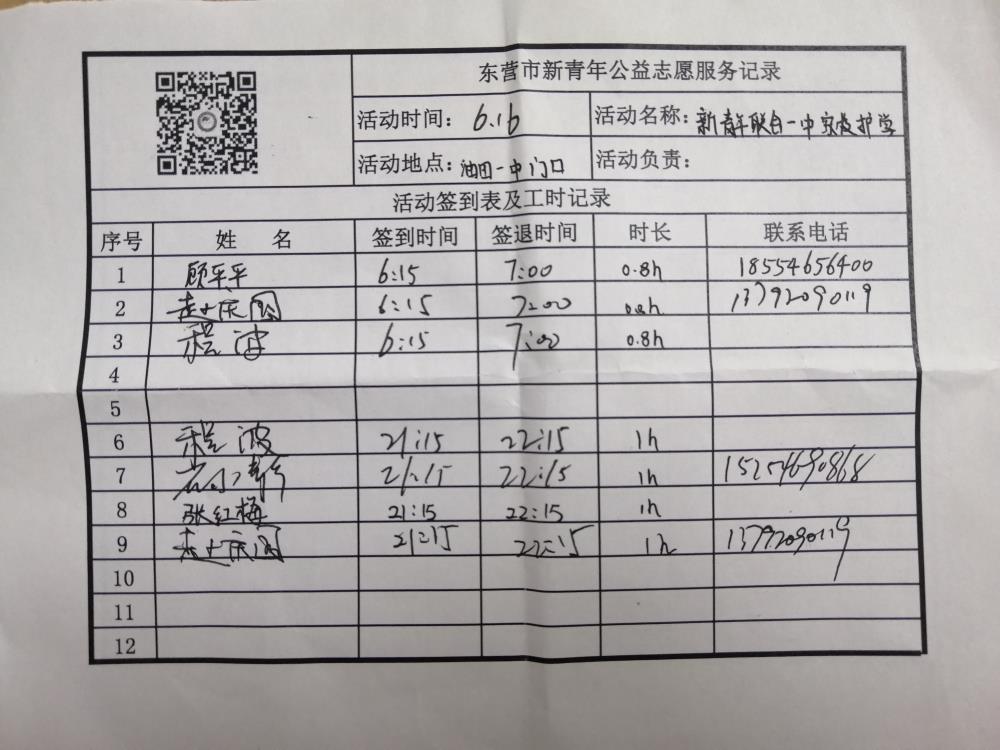 东营市新青年公益志愿服务记录
活动时间: 6.16 活动名称: 新青年联合一中家校护学
活动地点: 油田一中门口 活动负责:
活动签到表及工时记录
序号 姓 名 签到时间 签退时间 时长 联系电话
1 顾乐平 6:15 7:00 0.8h 18554656400
2 赵庆阁 6:15 7:00 0.8h 13792090119
3 程波 6:15 7:00 0.8h
4
5
6 程波 21:15 22:15 1h
7 21:15 22:15 1h 15254690868
8 张红梅 21:15 22:15 1h
9 赵庆阁 21:15 22:15 1h 13792090119
10
11
12